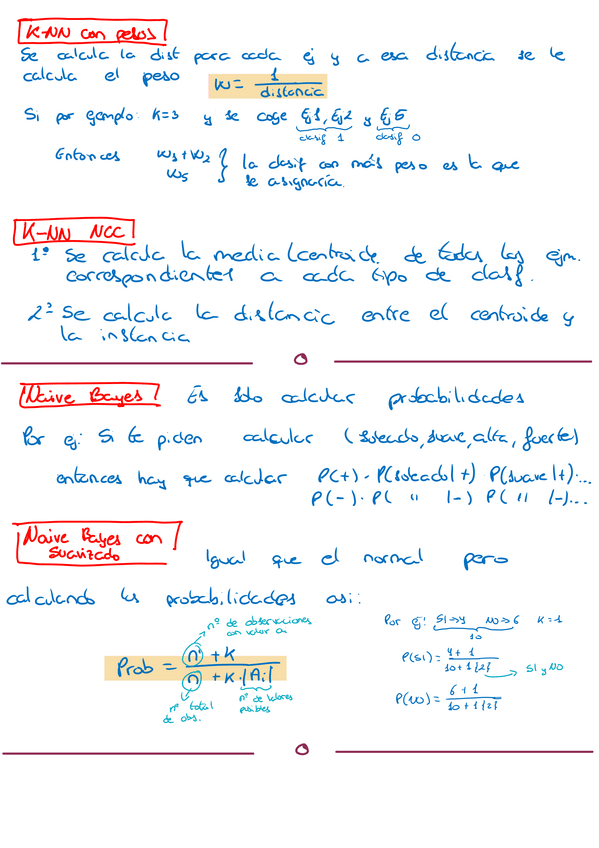 K-NN con pesos
Se calcula la dist para cada ej y a esa distancia se le
calcula el peso w = 1 / distancia
Si por ejemplo: K=3 y se coge Ej1, Ej2 y Ej5
clasif 1 clasif 0
Entonces w1 + w2 } la clasif con más peso es la que
w5 se asignaría.
K-NN NCC
1º Se calcula la media/centroide de todos los ejm.
correspondientes a cada tipo de clasf.
2º Se calcula la distancia entre el centroide y
la instancia
Naive Bayes Es solo calcular probabilidades
Por ej: Si te piden calcular (soleado, suave, alta, fuerte)
entonces hay que calcular P(+) · P(soleado|+) P(suave|+)·...
P(-) · P( " |-) P( " |-)...
Naive Bayes con
suavizado Igual que el normal pero
calculando las probabilidades asi:
nº de observaciones
con valor a
Prob = n' + K / n + K·|Ai|
nº total
de obs.
nº de valores
posibles
Por ej: SI→4 NO→6 K=1
10
P(SI) = 4+1 / 10+1|2| → SI y NO
P(NO) = 6+1 / 10+1|2|